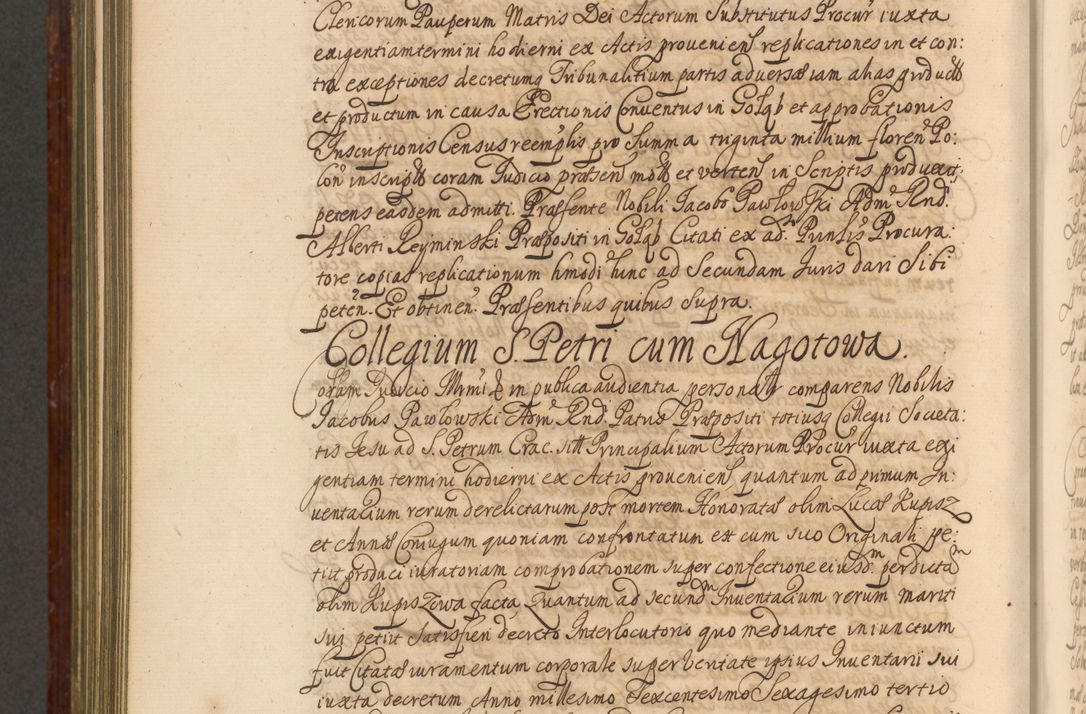 Clericorum Pauperum Matris Dei Actorum Substitutus Procur iuxta
exigentiam termini hodierni ex Actis prouenien replicationes in et con:
tra exceptiones decretumq Tribunalitium partis aduersæ iam alias product
et productum in causa Erectionis Conuentus in Gołąb et approbationis
Inscriptionis Census reemplis pro Summa triginta millium floren Po:
lon inscript coram Iudicio præsen mott et verten in Scriptis produxit
petens easdem admitti. Præsente Nobili Iacobo Pawłowski Adm Rnd.
Alberti Reyminski Præpositi in Gołąb Citati ex adr. Punlis Procura:
tore copias replicationum hmodi hinc ad Secundam Iuris dari Sibi
peten. Et obtinen. Præsentibus quibus Supra.
Collegium S. Petri cum Nagotowa.
Coram Iudicio Illrmi & in publica audientia personalr comparens Nobilis
Iacobus Pawlowski Adm Rnd. Patrum Præpositi totiusq Collegii Societa:
tis Iesu ad S. Petrum Crac. sitt Principalium Actorum Procur iuxta exi
gentiam termini hodierni ex Actis prouenien quantum ad primum In:
uentarium rerum derelictarum post mortem Honoratæ olim Lucæ Kupisz
et Annæ Coniugum quoniam confrontatum est cum suo Originali pe:
tiit produci iuratoriam comprobationem super confectione eiusdm perdictam
olim Kupiszowa facta Quantum ad secundm Inuentarium rerum mariti
sui petiit Satisfieri decreto Interlocutorio quo mediante iniunctum
fuit Citatæ iuramentum corporale super veritate ipsius Inuentarii sui
iuxta decretum Anno millesimo Sexcentesimo Sexagesimo tertio